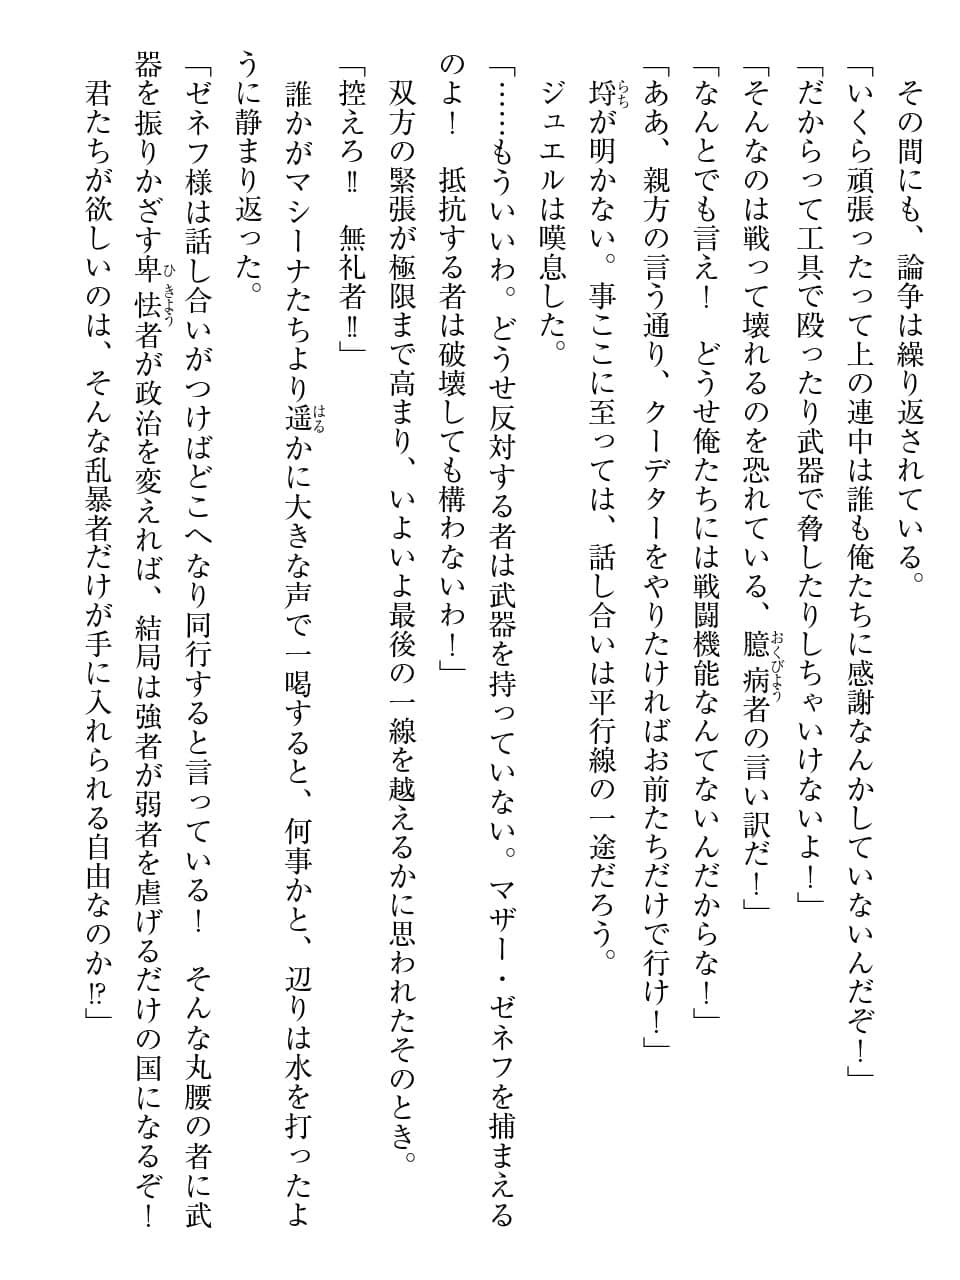 その間にも、論争は繰り返されている。
「いくら頑張ったって上の連中は誰も俺たちに感謝なんかしていないんだぞ！」
「だからって工具で殴ったり武器で脅したりしちゃいけないよ！」
「そんなのは戦って壊れるのを恐れている、臆病者の言い訳だ！」
「なんとでも言え！　どうせ俺たちには戦闘機能なんてないんだからな！」
「ああ、親方の言う通り、クーデターをやりたければお前たちだけで行け！」
埒が明かない。事ここに至っては、話し合いは平行線の一途だろう。
ジュエルは嘆息した。
「……もういいわ。どうせ反対する者は武器を持っていない。マザー・ゼネフを捕まえる
のよ！　抵抗する者は破壊しても構わないわ！」
双方の緊張が極限まで高まり、いよいよ最後の一線を越えるかに思われたそのとき。
「控えろ‼　無礼者‼」
誰かがマシーナたちより遥かに大きな声で一喝すると、何事かと、辺りは水を打ったよ
うに静まり返った。
「ゼネフ様は話し合いがつけばどこへなり同行すると言っている！　そんな丸腰の者に武
器を振りかざす卑怯者が政治を変えれば、結局は強者が弱者を虐げるだけの国になるぞ！
君たちが欲しいのは、そんな乱暴者だけが手に入れられる自由なのか⁉」